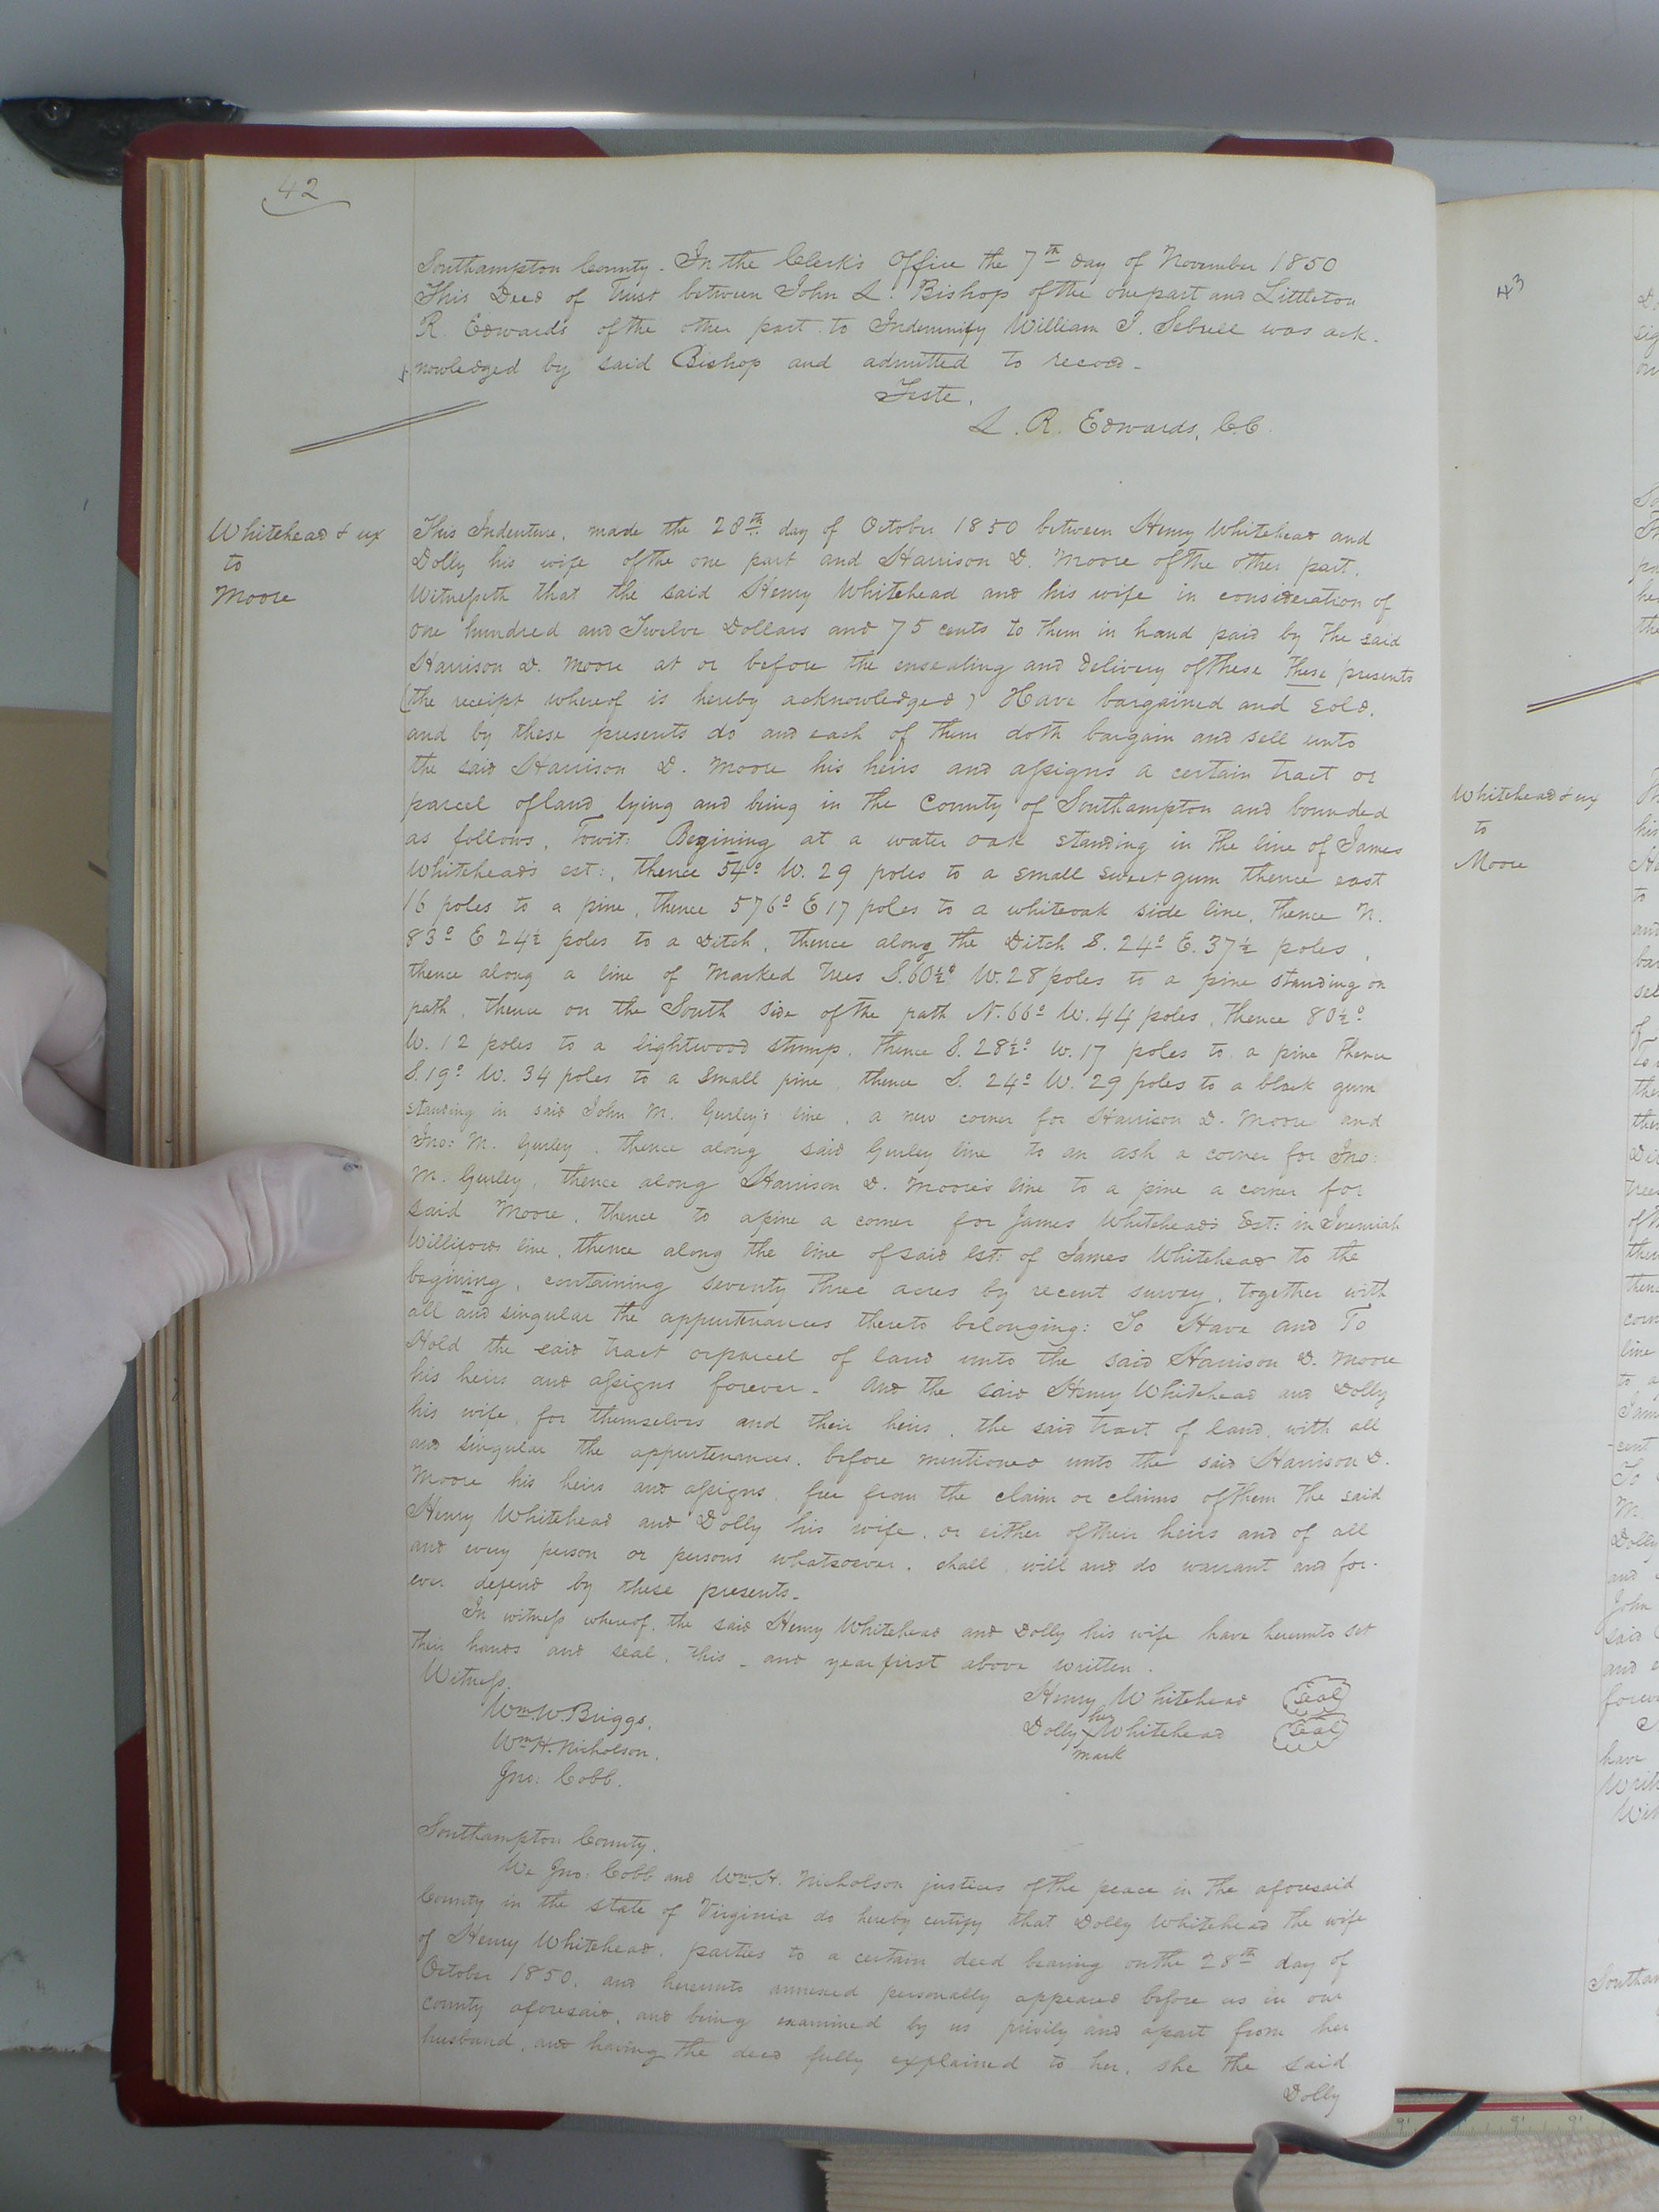 42
Southampton County. In the Clerk's Office the 7th day of November 1850
This Deed of Trust between John L. Bishop of the one part and Littleton
R. Edwards of the other part to Indemnify William J. Sebrell was ack-
nowledged by said Bishop and admitted to record.
Teste.
L. R. Edwards, C.C.
Whitehead & ux
to
Moore
This Indenture, made the 28th day of October 1850 between Henry Whitehead and
Dolly his wife of the one part and Harrison D. Moore of the other part.
Witnesseth that the said Henry Whitehead and his wife in consideration of
one hundred and Twelve Dollars and 75 cents to them in hand paid by the said
Harrison D. Moore at or before the ensealing and delivery of these these presents
(the receipt whereof is hereby acknowledged) Have bargained and sold,
and by these presents do and each of them doth bargain and sell unto
the said Harrison D. Moore his heirs and assigns a certain tract or
parcel of land lying and being in the County of Southampton and bounded
as follows, Towit: Begining at a water oak standing in the line of James
Whitehead's est:, thence 54° W. 29 poles to a small sweet gum thence east
16 poles to a pine, thence 576° E 17 poles to a whiteoak side line, thence N.
83° E 24½ poles to a Ditch, thence along the Ditch S. 24° E. 37½ poles,
thence along a line of Marked trees S. 60½° W. 28 poles to a pine standing on
path, thence on the South side of the path N. 66° W. 44 poles, thence 80½°
W. 12 poles to a lightwood stump, thence S. 28½° W. 17 poles to a pine thence
S. 19° W. 34 poles to a small pine, thence S. 24° W. 29 poles to a black gum
standing in said John M. Gurley's line, a new corner for Harrison D. Moore and
Jno: M. Gurley, thence along said Gurley line to an ash a corner for Jno:
M. Gurley, thence along Harrison D. Moore's line to a pine a corner for
said Moore, thence to a pine a corner for James Whitehead's Est: in Jeremiah
line, thence along the line of said est: of James Whitehead to the
begining, containing seventy three acres by recent survey, together with
all and singular the appurtenances thereto belonging: To Have and To
Hold the said tract or parcel of land unto the said Harrison D. Moore
his heirs and assigns forever. And the said Henry Whitehead and Dolly
his wife, for themselves and their heirs, the said tract of land, with all
and singular the appurtenances, before mentioned unto the said Harrison D.
Moore his heirs and assigns, free from the claim or claims of them the said
Henry Whitehead and Dolly his wife, or either of their heirs and of all
and every person or persons whatsoever, shall, will and do warrant and for-
ever defend by these presents.
In witness whereof, the said Henry Whitehead and Dolly his wife have hereunto set
their hands and seal, this _ and year first above written.
Witness.
Wm. W. Briggs.
Wm. H. Nicholson.
Jno: Cobb.
Henry Whitehead Seal
her
Dolly X Whitehead Seal
mark
Southampton County.
We Jno: Cobb and Wm. H. Nicholson justices of the peace in the aforesaid
County in the state of Virginia do hereby certify that Dolly Whitehead the wife
of Henry Whitehead, parties to a certain deed bearing on the 28th day of
October 1850, and hereunto annexed personally appeared before us in our
County aforesaid, and being examined by us privily and apart from her
husband, and having the deed fully explained to her, she the said
Dolly
43
Whitehead & ux
to
Moore